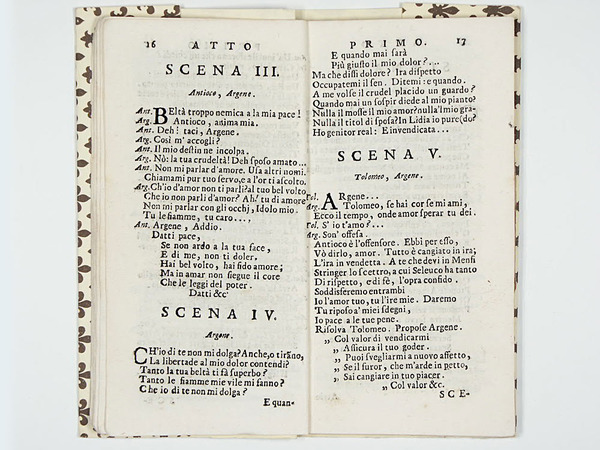 16 ATTO
SCENA III.
Antioco, Argene.
Ant. BEltà troppo nemica a la mia pace!
Arg. Antioco, anima mia.
Ant. Deh! taci, Argene.
Arg. Così m' accogli?
Ant. Il mio destin ne incolpa.
Arg. Nò: la tua crudeltà! Deh sposo amato...
Ant. Non mi parlar d'amore. Usa altri nomi.
Chiamami pur tuo servo, e a l'or ti ascolto.
Arg. Ch'io d'amor non ti parli? al tuo bel volto
Che io non parli d'amor? Ah! tu di amore
Non mi parlar con gli occhj, Idolo mio.
Tu le fiamme, tu caro....
Ant. Argene, Addio.
Datti pace,
Se non ardo a la tua face,
E di me, non ti doler.
Hai bel volto, hai fido amore;
Ma in amar non siegue il core
Che le leggi del poter.
Datti &c.
SCENA IV.
Argene.
CH'io di te non mi dolga? Anche, o tirano,
La libertade al mio dolor contendi?
Tanto la tua beltà ti fà superbo?
Tanto le fiamme mie vile mi fanno?
Che io di te non mi dolga?
E quan-
PRIMO. 17
E quando mai sarà
Più giusto il mio dolor?...
Ma che dissi dolore? Ira dispetto
Occupatemi il sen. Ditemi: e quando.
A me volse il crudel placido un guardo?
Quando mai un sospir diede al mio pianto?
Nulla il mosse il mio amor? nulla'l mio grado?
Nulla il titol di sposa? In Lidia io pure
Ho genitor real: E invendicata...
SCENA V.
Tolomeo, Argene.
Tol. ARgene...
Arg. Tolomeo, se hai cor se mi ami,
Ecco il tempo, onde amor sperar tu dei.
Tol. S' io t'amo?...
Arg. Son' offesa.
Antioco è l'offensore. Ebbi per esso,
Vò dirlo, amor. Tutto è cangiato in ira;
L'ira in vendetta. A te che devi in Menfi
Stringer lo scettro, a cui Seleuco ha tanto
Di rispetto, e di fè, l'opra confido.
Soddisferemo entrambi
Io l'amor tuo, tu l'ire mie. Daremo
Tu riposo a' miei sdegni,
Io pace a le tue pene.
Risolva Tolomeo. Propose Argene.
„ Col valor di vendicarmi
„ Assicura il tuo goder.
„ Puoi svegliarmi a nuovo affetto,
„ Se il furor, che m'arde in petto,
„ Sai cangiare in tuo piacer.
„ Col valor &c.
SCE-